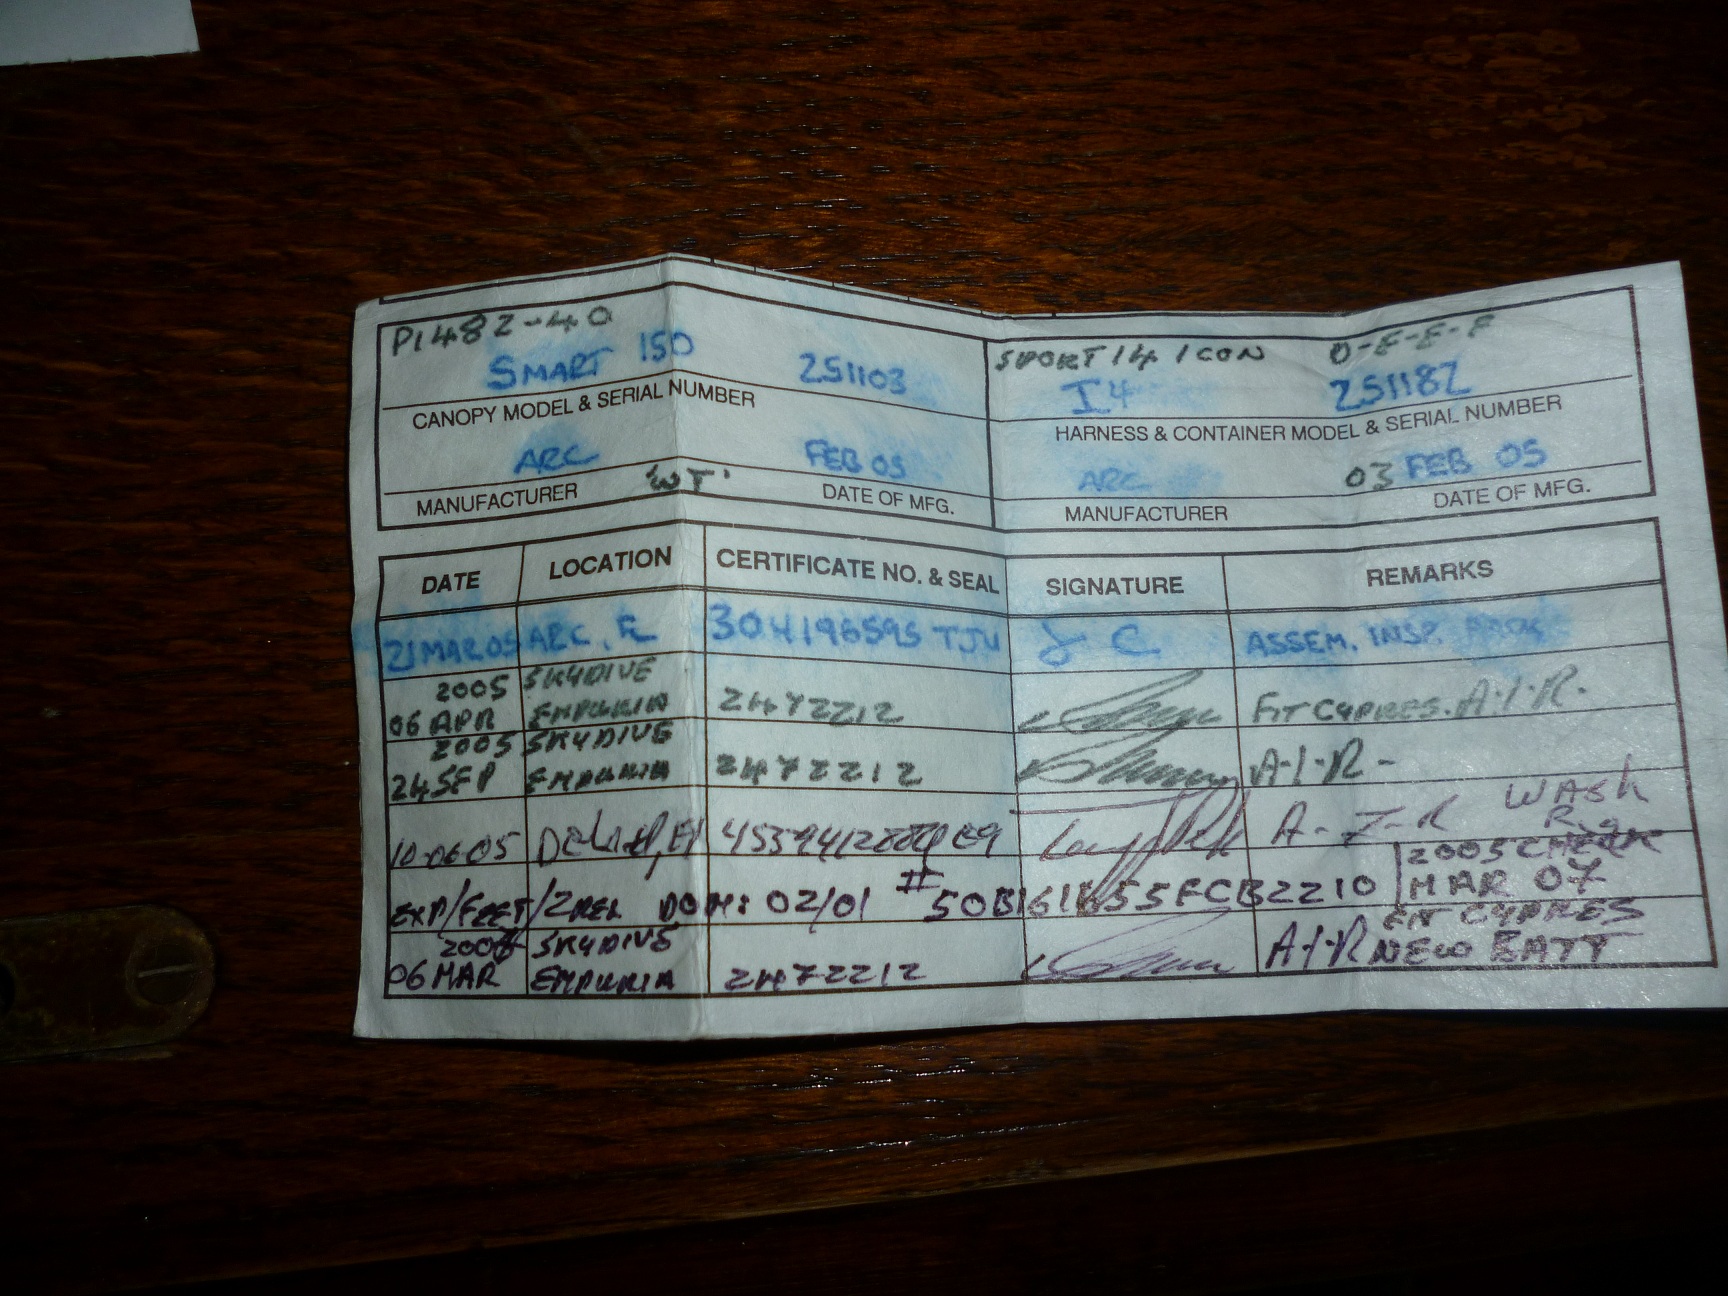 P1482-40
SMART 150 251103
CANOPY MODEL & SERIAL NUMBER
SPORT 14 ICON O-E-E-F
I4 251182
HARNESS & CONTAINER MODEL & SERIAL NUMBER
ARC 'WT' FEB 05
MANUFACTURER DATE OF MFG.
ARC 03 FEB 05
MANUFACTURER DATE OF MFG.
DATE LOCATION CERTIFICATE NO. & SEAL SIGNATURE REMARKS
21 MAR 05 ARC, 304196595 TJU J C ASSEM. INSP.
2005 SKYDIVE
06 APR EMPURIA 2472212 FIT CYPRES. A.I.R.
2005 SKYDIVE
24 SEP EMPURIA 2472212 A.I.R-
WASH
10-06-05 A-I-R Rig
2005 CHECK
EXP/FEET/ DOM: 02/01 # 2210 MAR 07
SKYDIVE CYPRES
06 MAR EMPURIA 2472212 A.I.R NEW BATT